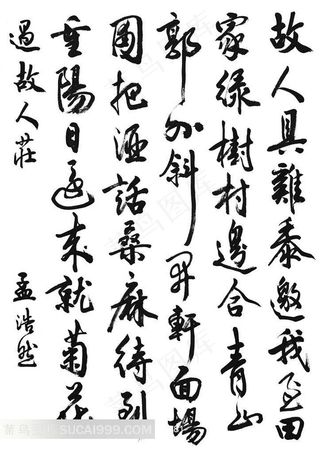 故人具雞黍邀我至田
家綠樹村邊合青山
郭外斜開軒面場
圃把酒話桑麻待到
重陽日還來就菊花
過故人莊
孟浩然
菜鸟图库 SUCAI999.COM